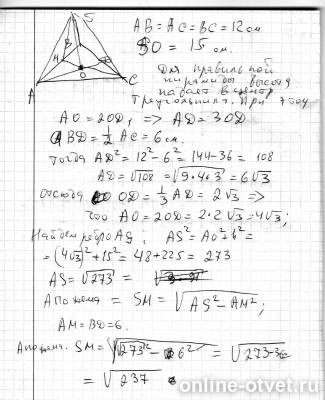 S
AB = AC = BC = 12 см
SO = 15 см.
B
H
O
A
C
Для правильной
пирамиды высота
падает в центр
треугольника. При этом
AO = 2OD, ⇒ AD = 3OD
BD = 1/2 AC = 6 см.
тогда AD² = 12² - 6² = 144 - 36 = 108
AD = √108 = √9·4·3 = 6√3
отсюда OD = 1/3 AD = 2√3 ⇒
AO = 2OD = 2·2√3 = 4√3;
Найдем ребро AS. AS² = AO² + h² =
= (4√3)² + 15² = 48 + 225 = 273
AS = √273 =
Апофема = SM = √AS² - AM²;
AM = BD = 6.
Апофема. SM = √√273² - 6² = √273-36
= √237
online-otvet.ru